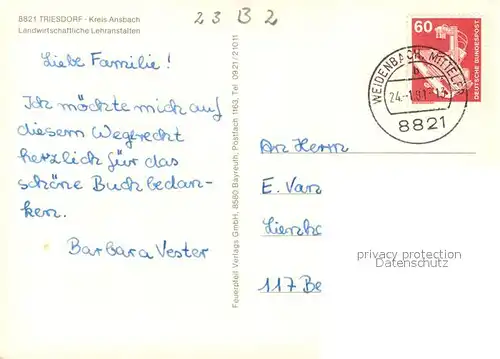 8821 TRIESDORF - Kreis Ansbach
Landwirtschaftliche Lehranstalten
23 B 2
60
DEUTSCHE BUNDESPOST
WEIDENBACH, MITTELFR
b
8821
Liebe Familie!
Ich möchte mich auf
diesem Wege recht
herzlich für das
schöne Buch bedan-
ken.
Barbara Vester
Feuerpfeil Verlags GmbH, 8580 Bayreuth, Postfach 1163, Tel. 0921/21011
An Herrn
E. Van
privacy protection
Datenschutz
117 Be